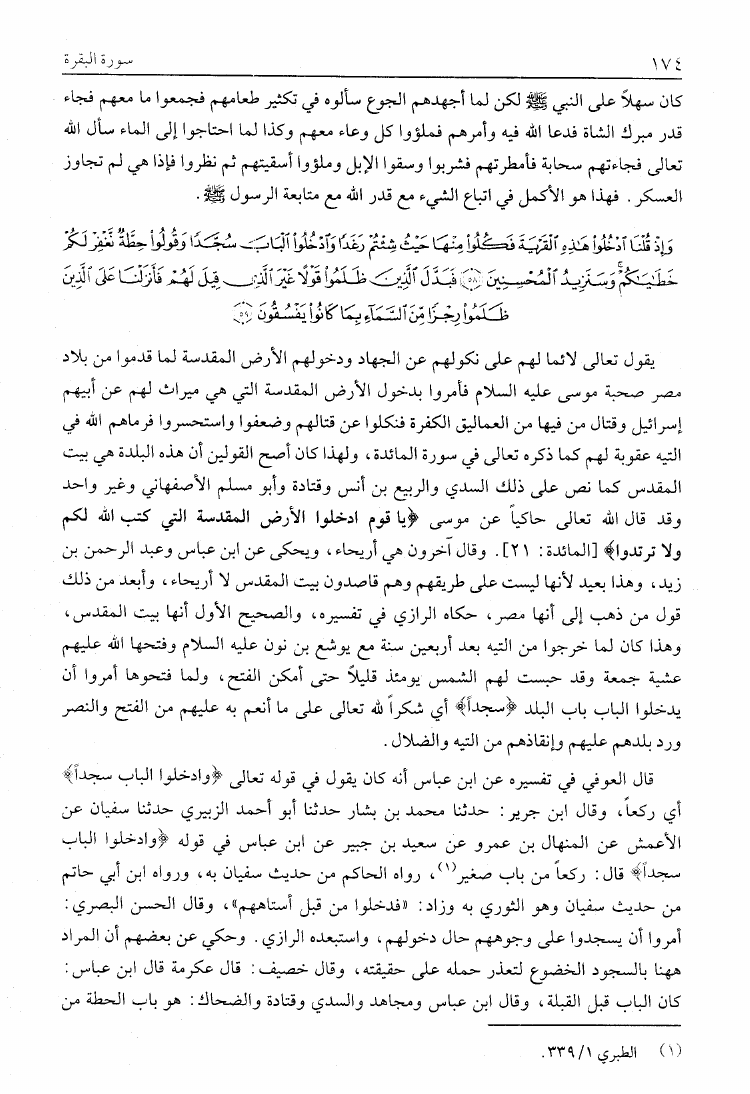 ١٧٤
سورة البقرة
كان سهلاً على النبي ﷺ لكن لما أجهدهم الجوع سألوه في تكثير طعامهم فجمعوا ما معهم فجاء
قدر مبرك الشاة فدعا الله فيه وأمرهم فملؤوا كل وعاء معهم وكذا لما احتاجوا إلى الماء سأل الله
تعالى فجاءتهم سحابة فأمطرتهم فشربوا وسقوا الإبل وملؤوا أسقيتهم ثم نظروا فإذا هي لم تجاوز
العسكر. فهذا هو الأكمل في اتباع الشيء مع قدر الله مع متابعة الرسول ﷺ.
وَإِذْ قُلْنَا ادْخُلُوا هَٰذِهِ الْقَرْيَةَ فَكُلُوا مِنْهَا حَيْثُ شِئْتُمْ رَغَدًا وَادْخُلُوا الْبَابَ سُجَّدًا وَقُولُوا حِطَّةٌ نَّغْفِرْ لَكُمْ
خَطَايَاكُمْ ۚ وَسَنَزِيدُ الْمُحْسِنِينَ ﴿٥٨﴾ فَبَدَّلَ الَّذِينَ ظَلَمُوا قَوْلًا غَيْرَ الَّذِي قِيلَ لَهُمْ فَأَنزَلْنَا عَلَى الَّذِينَ
ظَلَمُوا رِجْزًا مِّنَ السَّمَاءِ بِمَا كَانُوا يَفْسُقُونَ ﴿٥٩﴾
يقول تعالى لائما لهم على نكولهم عن الجهاد ودخولهم الأرض المقدسة لما قدموا من بلاد
مصر صحبة موسى عليه السلام فأمروا بدخول الأرض المقدسة التي هي ميراث لهم عن أبيهم
إسرائيل وقتال من فيها من العماليق الكفرة فنكلوا عن قتالهم وضعفوا واستحسروا فرماهم الله في
التيه عقوبة لهم كما ذكره تعالى في سورة المائدة، ولهذا كان أصح القولين أن هذه البلدة هي بيت
المقدس كما نص على ذلك السدي والربيع بن أنس وقتادة وأبو مسلم الأصفهاني وغير واحد
وقد قال الله تعالى حاكياً عن موسى ﴿يا قوم ادخلوا الأرض المقدسة التي كتب الله لكم
ولا ترتدوا﴾ [المائدة: ٢١]. وقال آخرون هي أريحاء، ويحكى عن ابن عباس وعبد الرحمن بن
زيد، وهذا بعيد لأنها ليست على طريقهم وهم قاصدون بيت المقدس لا أريحاء، وأبعد من ذلك
قول من ذهب إلى أنها مصر، حكاه الرازي في تفسيره، والصحيح الأول أنها بيت المقدس،
وهذا كان لما خرجوا من التيه بعد أربعين سنة مع يوشع بن نون عليه السلام وفتحها الله عليهم
عشية جمعة وقد حبست لهم الشمس يومئذ قليلاً حتى أمكن الفتح، ولما فتحوها أمروا أن
يدخلوا الباب باب البلد ﴿سجداً﴾ أي شكراً لله تعالى على ما أنعم به عليهم من الفتح والنصر
ورد بلدهم عليهم وإنقاذهم من التيه والضلال.
قال العوفي في تفسيره عن ابن عباس أنه كان يقول في قوله تعالى ﴿وادخلوا الباب سجداً﴾
أي ركعاً، وقال ابن جرير: حدثنا محمد بن بشار حدثنا أبو أحمد الزبيري حدثنا سفيان عن
الأعمش عن المنهال بن عمرو عن سعيد بن جبير عن ابن عباس في قوله ﴿وادخلوا الباب
سجداً﴾ قال: ركعاً من باب صغير(١)، رواه الحاكم من حديث سفيان به، ورواه ابن أبي حاتم
من حديث سفيان وهو الثوري به وزاد: «فدخلوا من قبل أستاههم»، وقال الحسن البصري:
أمروا أن يسجدوا على وجوههم حال دخولهم، واستبعده الرازي. وحكي عن بعضهم أن المراد
ههنا بالسجود الخضوع لتعذر حمله على حقيقته، وقال خصيف: قال عكرمة قال ابن عباس:
كان الباب قبل القبلة، وقال ابن عباس ومجاهد والسدي وقتادة والضحاك: هو باب الحطة من
(١) الطبري ١/ ٣٣٩.